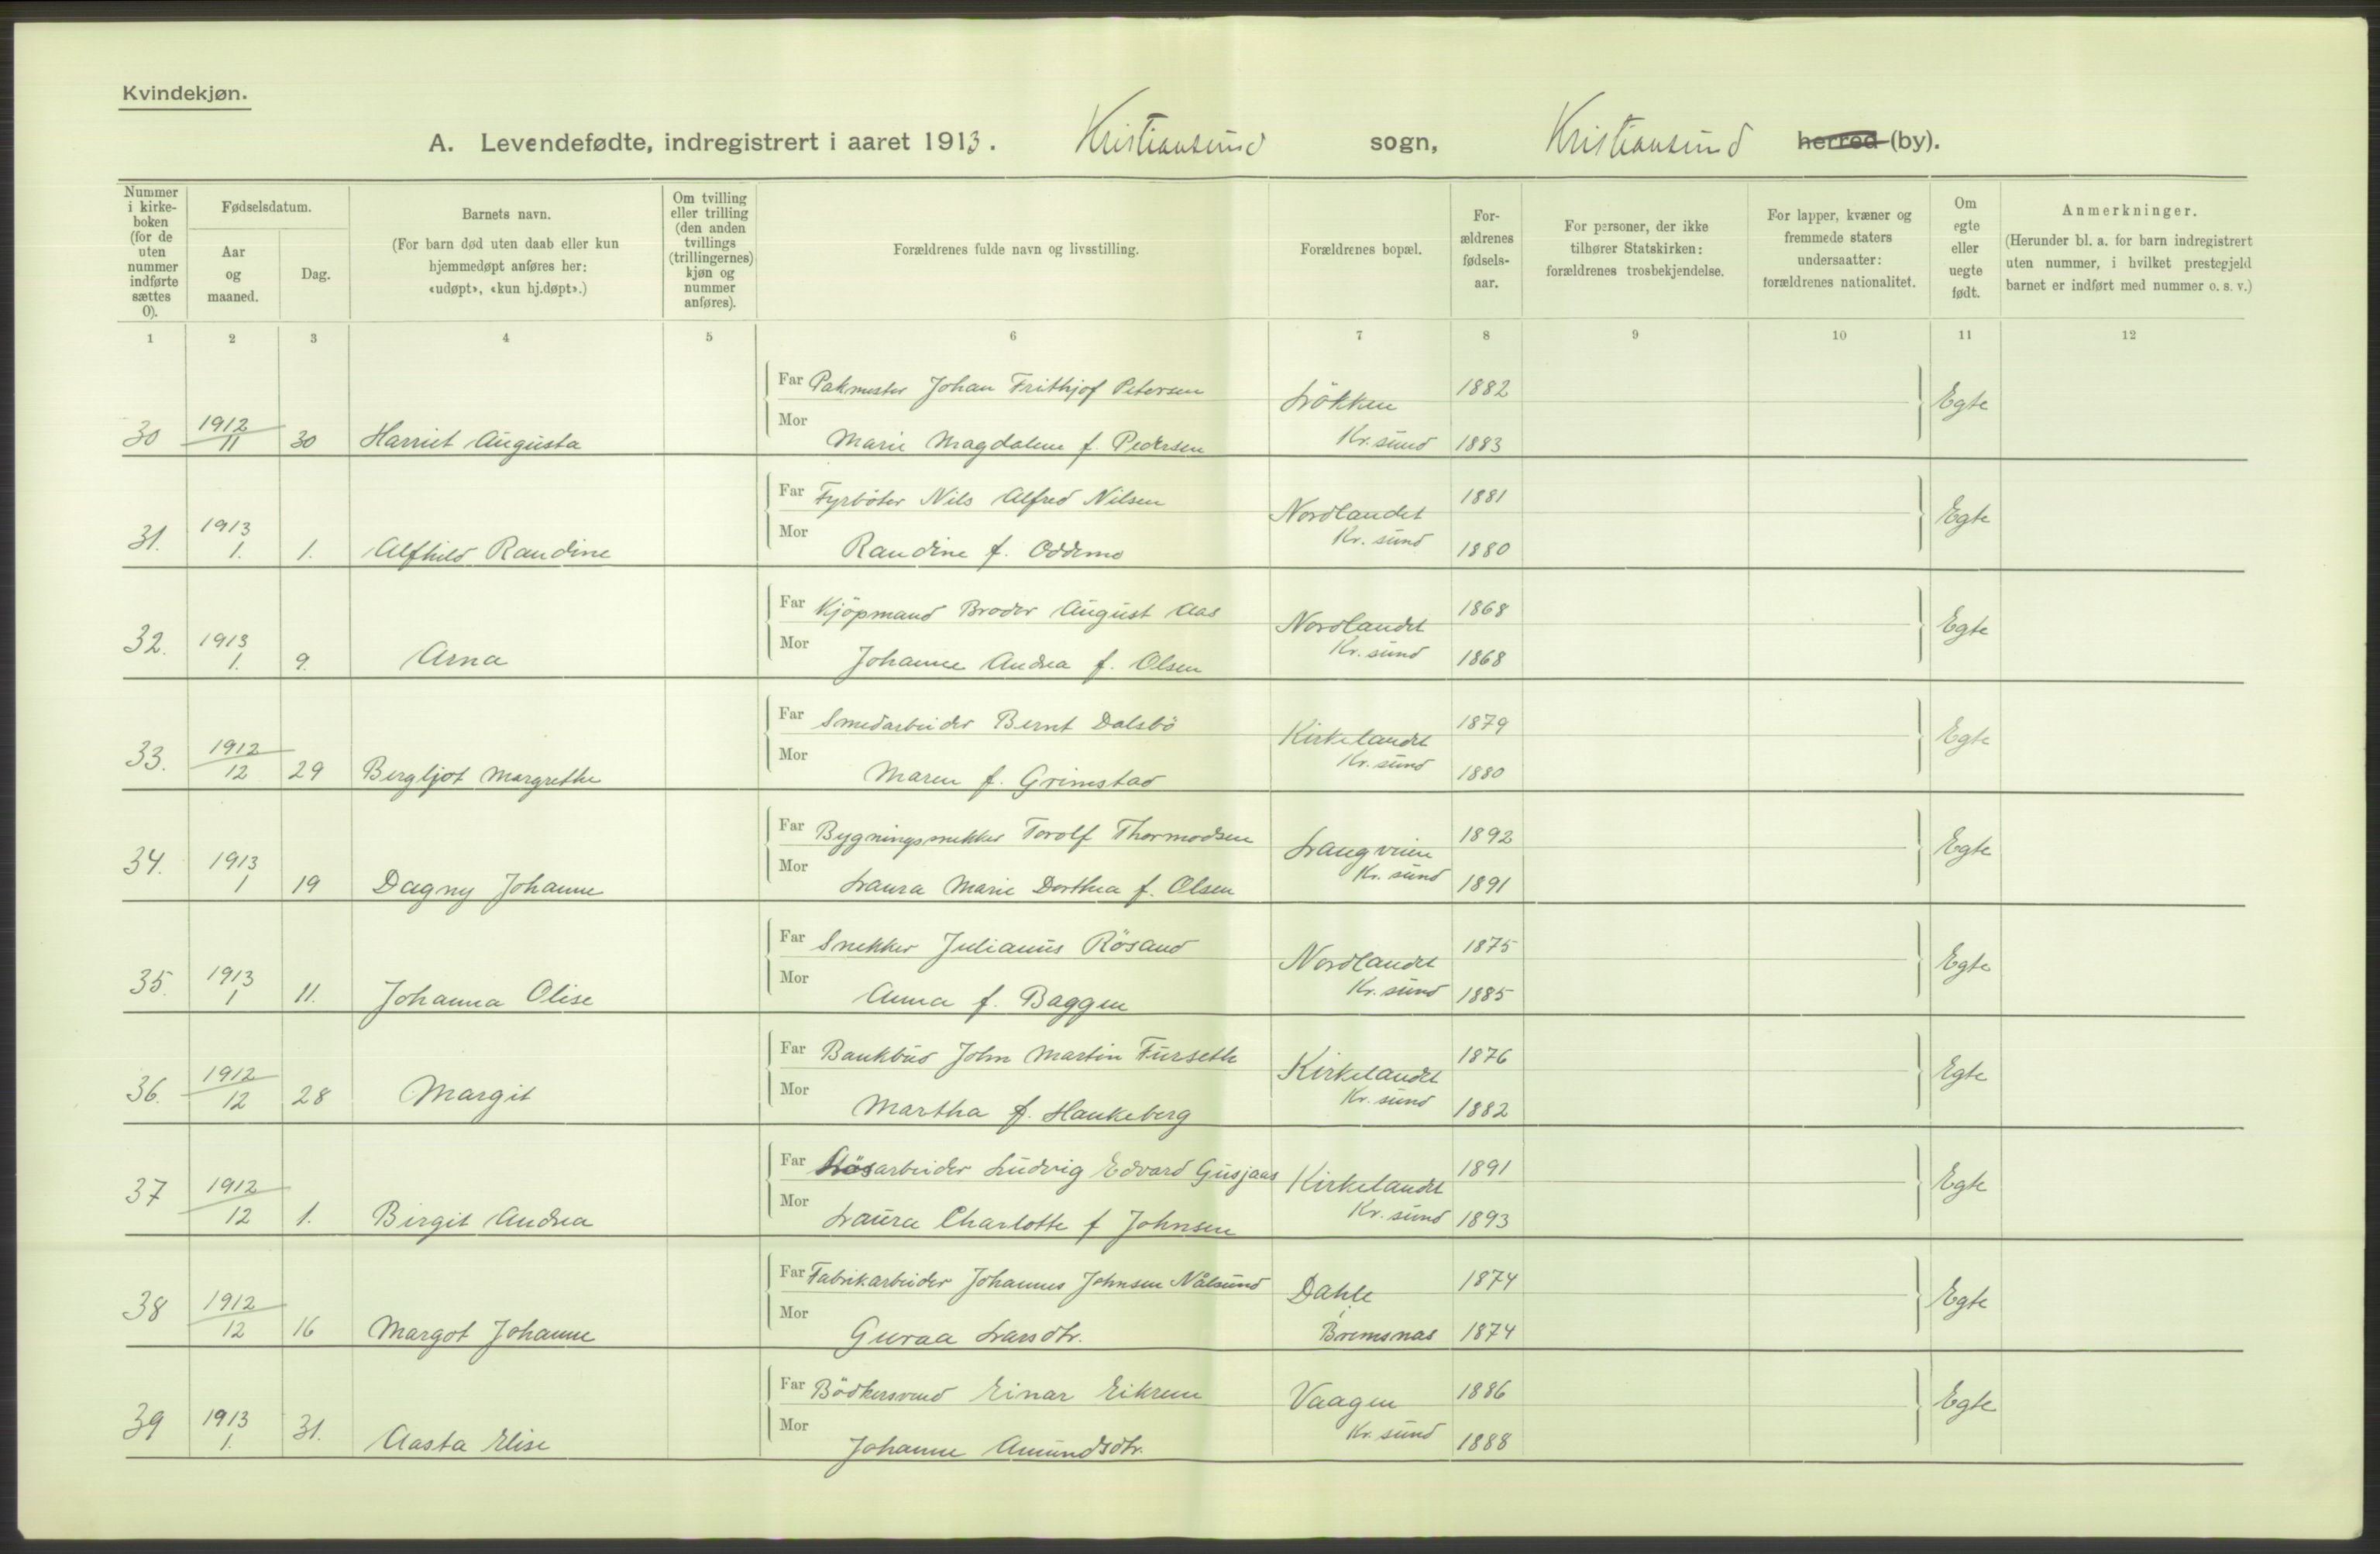 Kvindekjøn.
A. Levendefødte, indregistrert i aaret 1913. Kristiansund sogn, Kristiansund herred (by).
Nummer i kirke-boken (for de uten nummer indførte sættes 0).
Fødselsdatum.
Aar og maaned.
Dag.
Barnets navn.
(For barn død uten daab eller kun hjemmedøpt anføres her: «udøpt», «kun hj.døpt».)
Om tvilling eller trilling (den anden tvillings (trillingernes) kjøn og nummer anføres).
Forældrenes fulde navn og livsstilling.
Forældrenes bopæl.
For-ældrenes fødsels-aar.
For personer, der ikke tilhører Statskirken: forældrenes trosbekjendelse.
For lapper, kvæner og fremmede staters undersaatter: forældrenes nationalitet.
Om egte eller uegte født.
Anmerkninger.
(Herunder bl. a. for barn indregistrert uten nummer, i hvilket prestegjeld barnet er indført med nummer o. s. v.)
1 2 3 4 5 6 7 8 9 10 11 12
Far Pakmester Johan Frithjof Petersen Løkken 1882 Egte
30 1912 11 30 Harriet Augusta Mor Marie Magdalene f. Pedersen Kr.sund 1883
Far Fyrbøter Nils Alfred Nilsen Nordlandet 1881 Egte
31. 1913 1. 1. Alfhild Randine Mor Randine f. Oddemo Kr. sund 1880
Far Kjøpmand Broder August Aas Nordlandet 1868 Egte
32. 1913 1. 9. Arna Mor Johanne Andrea f. Olsen Kr. sund 1868
Far Smedarbeider Bernt Dalsbö Kirkelandet 1879 Egte
33. 1912 12 29 Bergljot Margrethe Mor Maren f. Grimstad Kr. sund 1880
Far Bygningssnekker Torolf Thormodsen Langveien 1892 Egte
34. 1913 1 19 Dagny Johanne Mor Laura Marie Dorthea f. Olsen Kr. sund 1891
Far Snekker Julianus Rösand Nordlandet 1875 Egte
35. 1913 1 11. Johanna Olise Mor Anna f. Baggen Kr. sund 1885
Far Bankbud John Martin Furseth Kirkelandet 1876 Egte
36. 1912 12 28 Margit Mor Martha f. Haukeberg Kr. sund 1882
Far Løsarbeider Ludvig Edvard Gusjaas Kirkelandet 1891 Egte
37 1912 12 1. Birgit Andrea Mor Laura Charlotte f Johnsen Kr. sund 1893
Far Fabrikarbeider Johannes Johnsen Nålsund Dahle 1874 Egte
38 1912 12 16 Margot Johanne Mor Guraa Larsdtr. i Bremsnas 1874
Far Bödkersvend Einar Eikrem Vaagen 1886 Egte
39 1913 1. 31. Aasta Elise Mor Johanne Amundsdtr. Kr. sund 1888